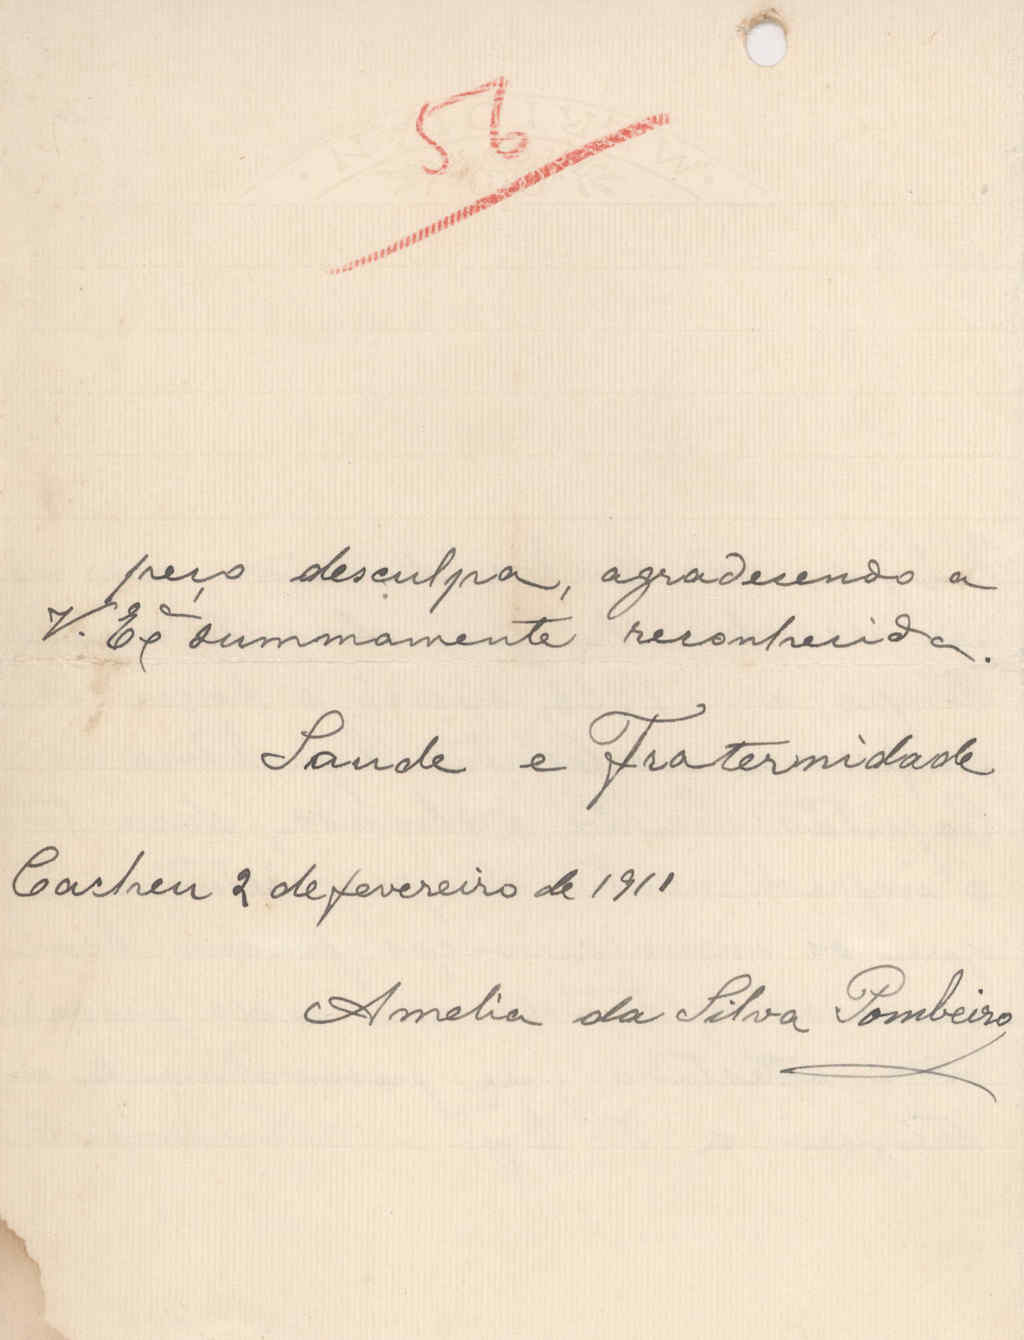 56
peço desculpa, agradecendo a
V. Exª summamente reconhecida.
Saude e Fraternidade
Cacheu 2 de fevereiro de 1911
Amelia da Silva Pombeiro